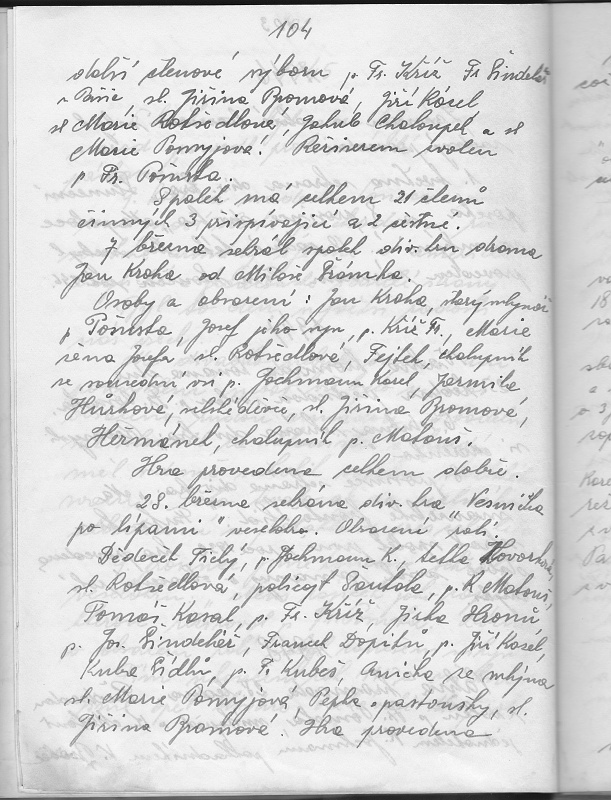 104
další členové výboru p. Fr. Kříž Fr Šindelář
sl. Jiřina Bromová, Jiří Kásel
sl Marie Rotšédlová, Jakub Chaloupek a sl
Marie Pomyjová. Režiserem zvolen
p Fr. Pošusta.
Spolek má celkem 21 členů
činných 3 přispívající a 2 čestné.
7 března sehrál spolek div. hru drama
Jan Kraha od Miloše Šramka.
Osoby a obsazení: Jan Kraha, starý mlynář
p Pošusta, Josef jeho syn, p. Kříž Fr., Marie
žena Josefa sl. Rotšédlová, Fejtek, chalupník
ze sousední vsi p. Jochmann Karel, Jarmila
Hůrková, selské děvče, sl. Jiřina Bromová,
Heřmánek, chalupník p. Matouš.
Hra provedena celkem dobře.
28. března sehrána div. hra „Vesnička
po lipami" veselohra. Obsazení rolí.
Dědeček Tichý, p. Jochmann K., tetka Hovorka
sl. Rotšédlová, policajt Šautola, p. R Matouš,
Tomáš Kasal, p. Fr. Kříž, Jirka Hronů
p. Jos. Šindelář, Francek Dopitů, p. Jiří Kásel,
Kuba Šídlů, p. Fr Kubeš, Anička ze mlýna
sl. Marie Pomyjová, Pepka pastoušky, sl.
Jiřina Bromová. Hra provedena